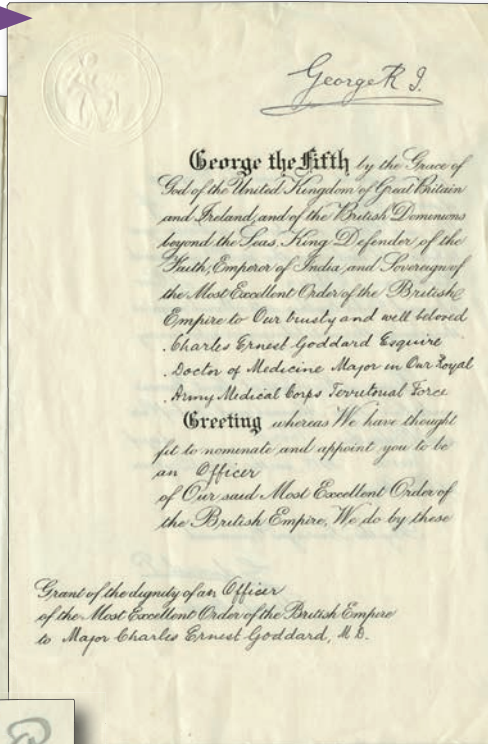 George R I.
George the Fifth by the Grace of
God of the United Kingdom of Great Britain
and Ireland, and of the British Dominions
beyond the Seas, King Defender of the
Faith, Emperor of India, and Sovereign of
the Most Excellent Order of the British
Empire to Our trusty and well beloved
Charles Ernest Goddard Esquire
Doctor of Medicine Major in Our Royal
Army Medical Corps Territorial Force
Greeting whereas We have thought
fit to nominate and appoint you to be
an Officer
of Our said Most Excellent Order of
the British Empire, We do by these
Grant of the dignity of an Officer
of the Most Excellent Order of the British Empire
to Major Charles Ernest Goddard, M.D.